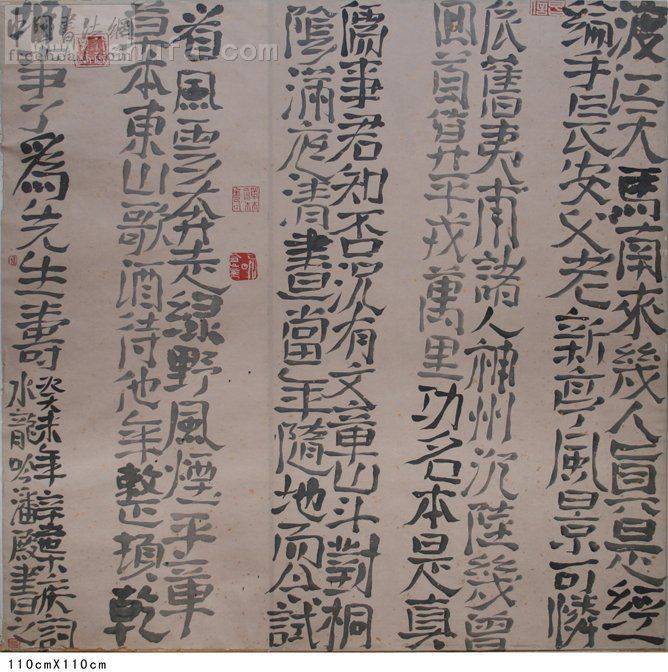 渡江天馬南來幾人真是經
綸手長安父老新亭風景可憐
依舊夷甫諸人神州沉陸幾曾
回首算平戎萬里功名本是真
儒事君知否況有文章山斗對桐
陰滿庭清晝當年隨地而今試
看風雲奔走綠野風煙平章
草本東山歌酒待他年整頓乾
坤事了爲先生壽
癸未年辛棄疾詞
水龍吟潘殿書之
110cmX110cm